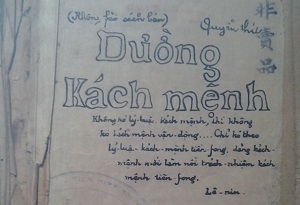 (Không fải sách bán)
Quyển thứ
非賣品
Dường
Kách mệnh
Không kó lý-luận kách mệnh, thì không
kó kách mệnh vận-động.... Chỉ kó theo
lý-luận kách-mệnh tiền fong, đảng kách-
mệnh mới làm nổi trách-nhiệm kách
mệnh tiền fong.
Lê-nin.